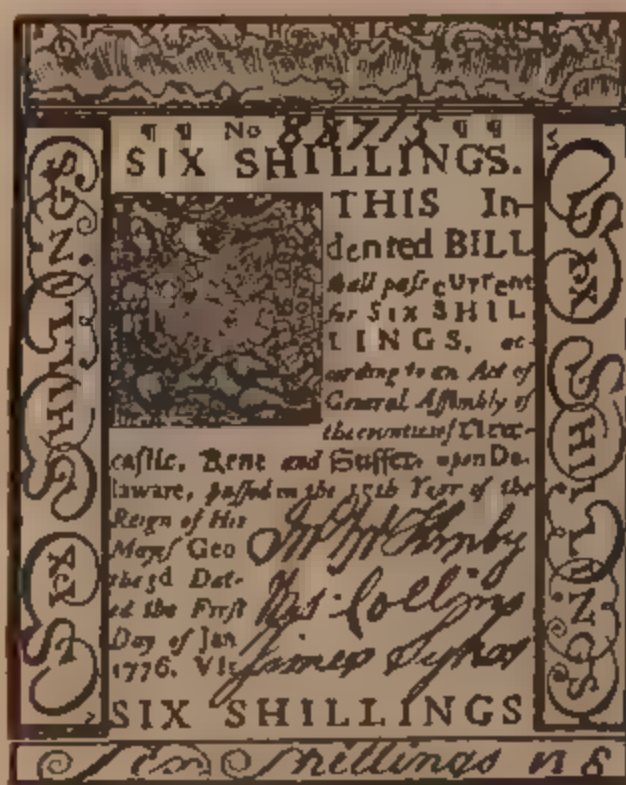 ¶ ¶ No 88715 ¶ ¶
SIX SHILLINGS.
THIS In-
dented BILL
shall pass current
for SIX SHIL
LINGS, ac-
cording to an Act of
General Assembly of
the counties of New-
castle, Kent and Sussex, upon De-
laware, passed in the 15th Year of the
Reign of His
Majesf Geo
the 3d Dat-
ed the First
Day of Jan
1776. VI
Thos. Collins
James Sykes
SIX SHILLINGS
SIX SHILLINGS
SIX SHILLINGS
Shillings N 8